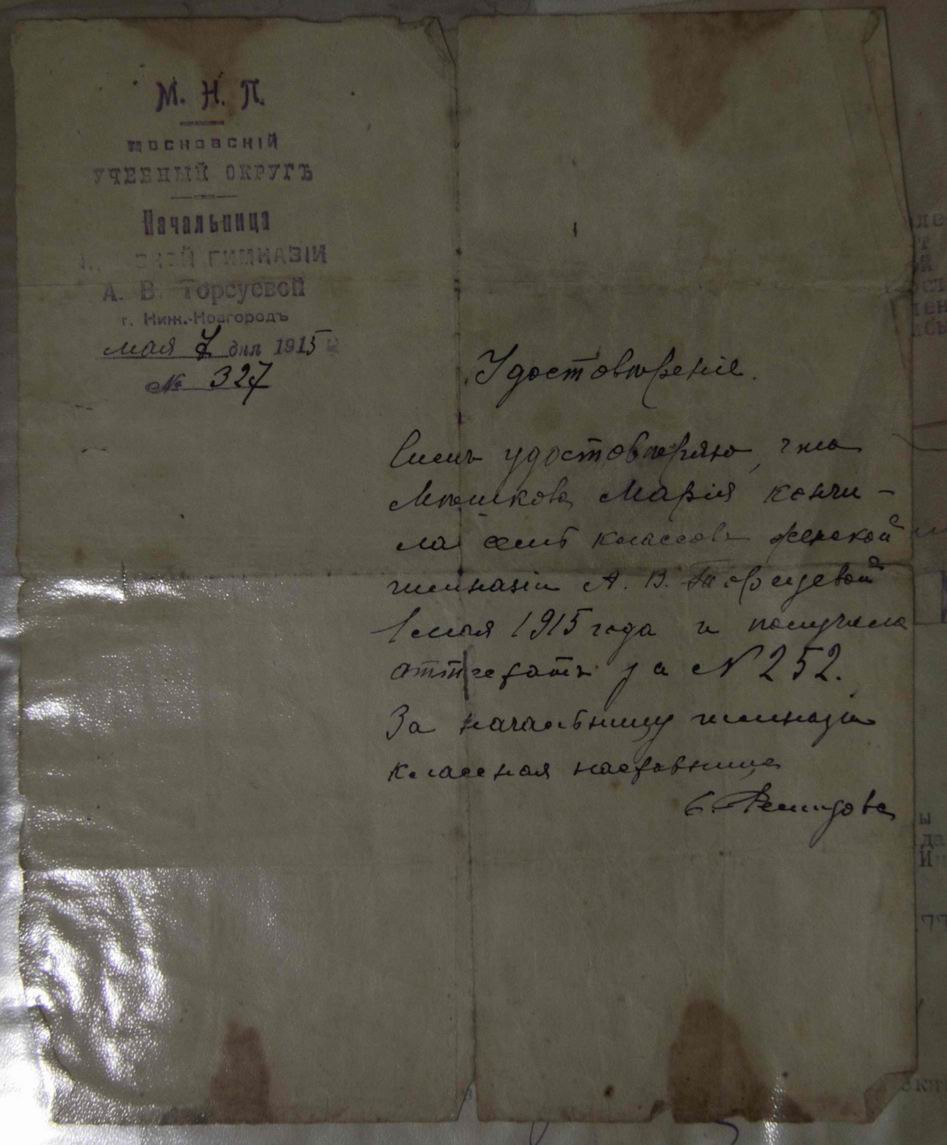 М. Н. П.
МОСКОВСКІЙ
УЧЕБНЫЙ ОКРУГЪ
Начальница
ГИМНАЗІИ
А. В. Торсуевой
г. Ниж.-Новгородъ
мая 7 дня 1915 г.
№ 327
Удостовѣреніе.
Симъ удостовѣряю, что
Мышкова Марія кончи-
ла семь классовъ женской
гимназіи А. В. Торсуевой
1 мая 1915 года и получила
аттестатъ за № 252.
За начальницу гимназіи
классная наставница